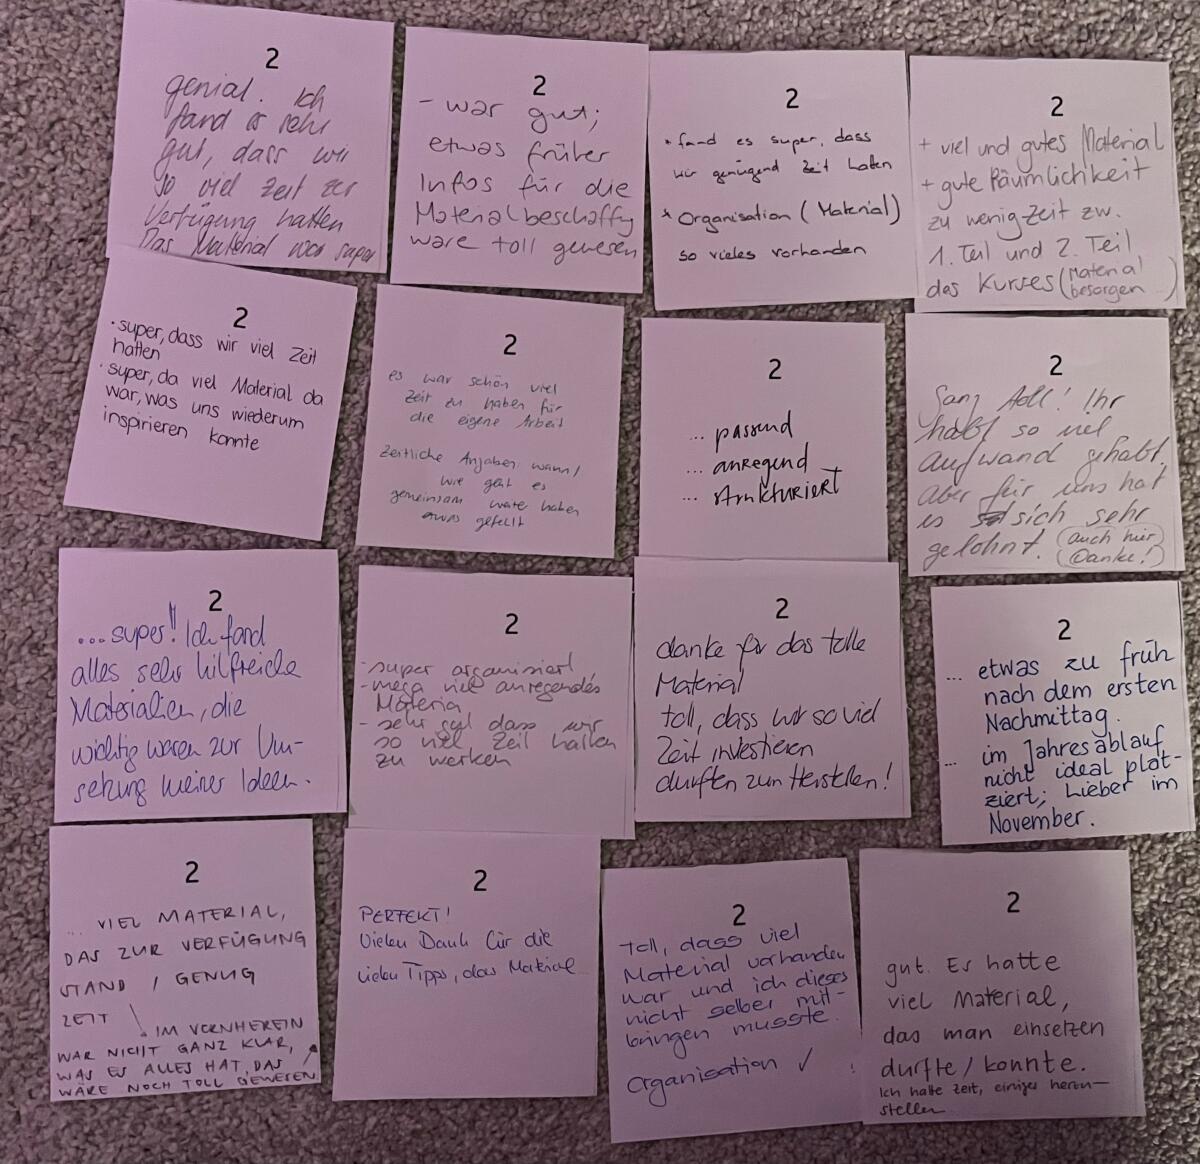 2
genial. Ich
fand es sehr
gut, dass wir
so viel Zeit zur
Verfügung hatten
Das Material war super
2
- war gut;
etwas früher
Infos für die
Materialbeschaffg
wäre toll gewesen
2
* fand es super, dass
wir genügend Zeit hatten
* Organisation (Material)
so vieles vorhanden
2
+ viel und gutes Material
+ gute Räumlichkeit
zu wenig Zeit zw.
1. Teil und 2. Teil
des Kurses (Material
besorgen ...)
2
· super, dass wir viel Zeit
hatten
· super, da viel Material da
war, was uns wiederum
inspirieren konnte
2
es war schön viel
Zeit zu haben für
die eigene Arbeit
Zeitliche Angaben wann/
wie geht es
gemeinsam weiter haben
etwas gefehlt
2
... passend
... anregend
... strukturiert
2
Ganz toll! Ihr
habt so viel
Aufwand gehabt.
Aber für uns hat
es sich sehr
gelohnt. (auch hier
Danke!)
2
...super!! Ich fand
alles sehr hilfreiche
Materialien, die
wichtig waren zur Um-
setzung meiner Ideen.
2
- super organisiert
- mega viel anregendes
Material
- sehr gut dass wir
so viel Zeit hatten
zu werken
2
danke für das tolle
Material
toll, dass wir so viel
Zeit investieren
durften zum Herstellen!
2
... etwas zu früh
nach dem ersten
Nachmittag.
... im Jahresablauf
nicht ideal plat-
ziert; Lieber im
November.
2
... VIEL MATERIAL,
DAS ZUR VERFÜGUNG
STAND / GENUG
ZEIT
IM VORNHEREIN
WAR NICHT GANZ KLAR,
WAS ES ALLES HAT, DAS
WÄRE NOCH TOLL GEWESEN
2
PERFEKT!
Vielen Dank für die
vielen Tipps, das Material...
2
Toll, dass viel
Material vorhanden
war und ich dieses
nicht selber mit-
bringen musste.
Organisation ✓
2
gut. Es hatte
viel Material,
das man einsetzen
durfte/konnte.
Ich hatte Zeit, einiges herzu-
stellen